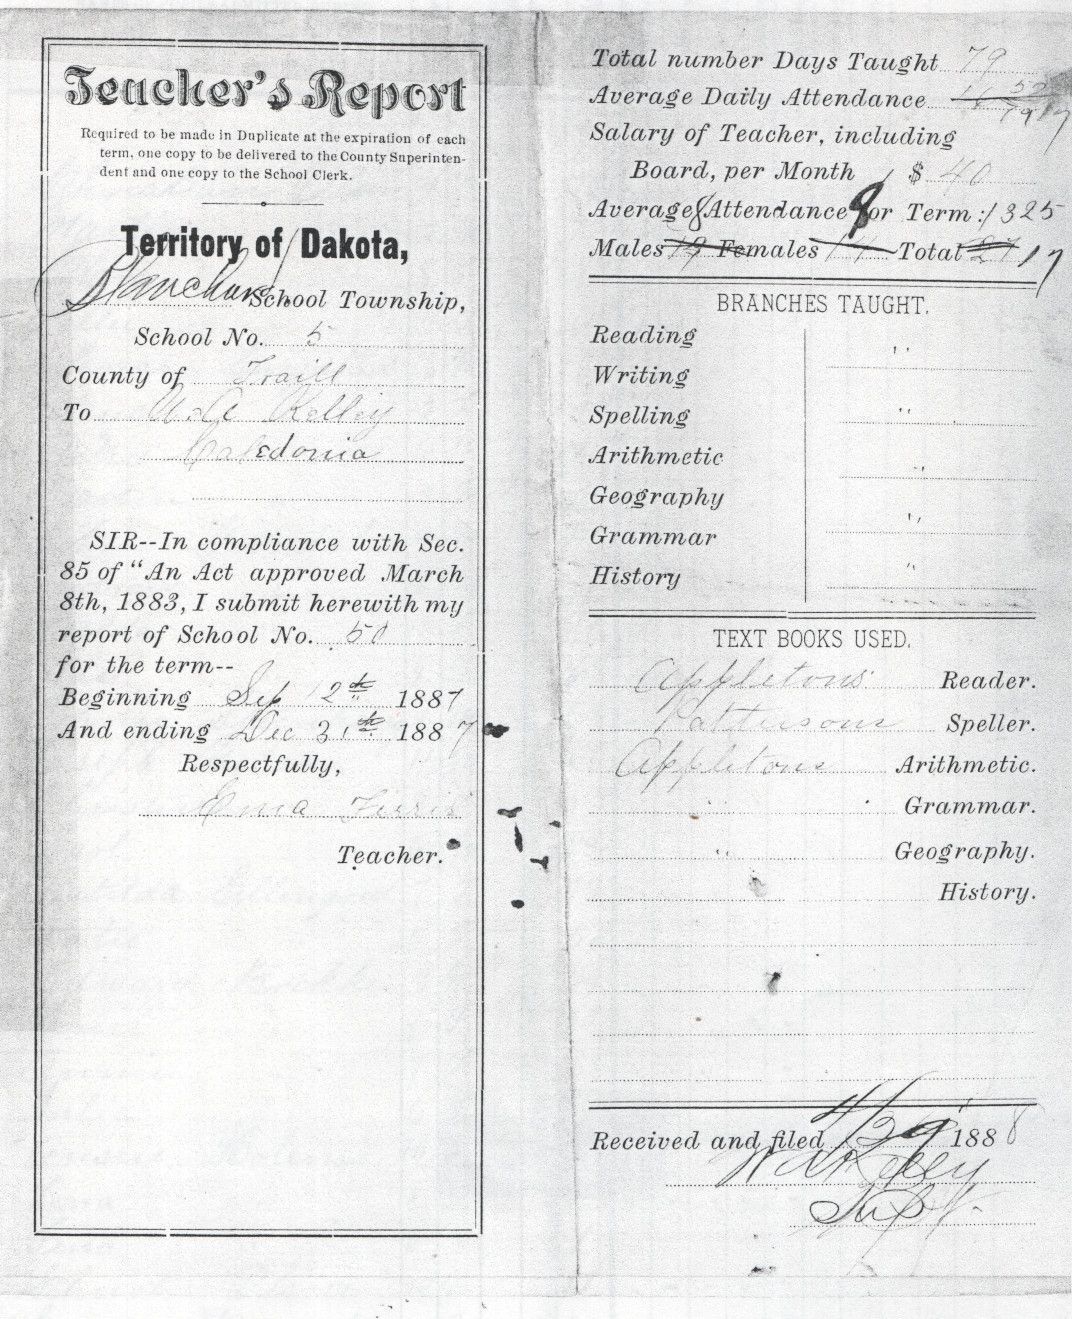 Teacher's Report
Required to be made in Duplicate at the expiration of each
term, one copy to be delivered to the County Superinten-
dent and one copy to the School Clerk.
Territory of Dakota,
Blanchard School Township,
School No. 5
County of Traill
To W. A. Kelley
Caledonia
SIR--In compliance with Sec.
85 of "An Act approved March
8th, 1883, I submit herewith my
report of School No. 50
for the term--
Beginning Sep 12th 1887
And ending Dec 31th 1887
Respectfully,
Ema
Teacher.
Total number Days Taught 79
Average Daily Attendance 17
Salary of Teacher, including
Board, per Month $ 40
Average Attendance for Term: 1325
Males 8 Females 9 Total 17
BRANCHES TAUGHT.
Reading "
Writing
Spelling "
Arithmetic "
Geography "
Grammar "
History
TEXT BOOKS USED.
Appletons' Reader.
Pattersons Speller.
Appletons Arithmetic.
" Grammar.
" Geography.
History.
Received and filed 4/29 1888
W A Kelley
Supt.